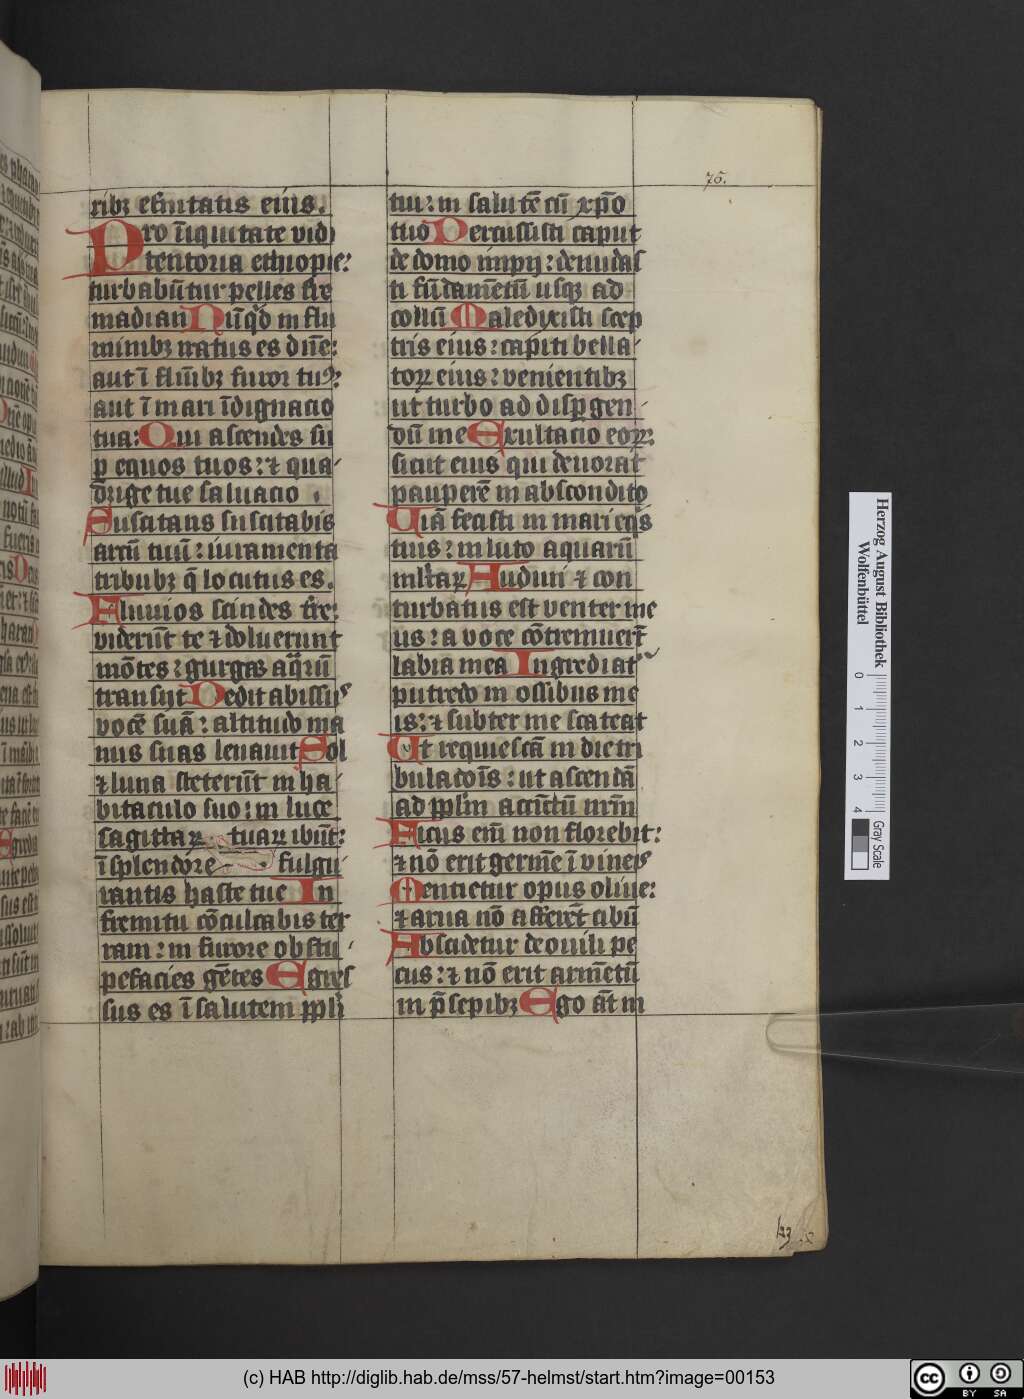 75.
ribꝫ et̄nitatis eius.
Pro īiquitate vidi
tentoria ethiopie:
turbabūtur pelles tr̄e
madian Nūqͥd in flu
minibꝫ iratus es dūe:
aut ī flūībꝫ furor tuꝰ:
aut ī mari īdignacio
tua: Qui ascendes su
ꝑ equos tuos: ⁊ qua-
drige tue saluacio .
Suscitans suscitabis
arcū tuū: iuramenta
tribubꝫ q̄ locutus es.
Fluuios scindes tr̄e:
viderūt te ⁊ doluerunt
mōtes: gurges aq̄rū
transijt Dedit abissus
vocē suā: altitudo ma
nus suas leuauit Sol
⁊ luna steterūt in ha-
bitaculo suo: in luce
sagittaꝝ tuaꝝ ibūt:
ī splendore fulgu
rantis haste tue In
fremitu cōculcabis ter
ram: in furore obstu-
pefacies gētes Egres
sus es ī salutem ppl̄i
tui: in salutē cū xp̄o
tuo Percussisti caput
de domo impij: denudas
ti fūdamētū usqꝫ ad
collū Maledixisti scep
tris eius: capiti bella-
toꝝ eius: venientibꝫ
ut turbo ad disꝑgen-
dū me Exultacio eoꝝ:
sicut eius qui deuorat
pauperē in abscondito
Uiā fecisti in mari eqͥs
tuis: in luto aquarū
ml̄taꝝ Audiui ⁊ con
turbatus est venter me
us: a voce cōtremuer̄t
labia mea Ingrediat᷑
putredo in ossibus me
is: ⁊ subter me scateat
Ut requiescā in die tri
bulacōis: ut ascendā
ad ppl̄m accīctū nr̄m
Ficus em̄ non florebit:
⁊ nō erit germē ī vineis
Mentietur opus oliue:
⁊ arua nō afferēt cibū
Abscidetur de ouili pe
cus: ⁊ nō erit armētū
in p̄sepibꝫ Ego āt in
Herzog August Bibliothek
Wolfenbüttel
0 1 2 3 4
Gray Scale
(c) HAB http://diglib.hab.de/mss/57-helmst/start.htm?image=00153
cc BY SA